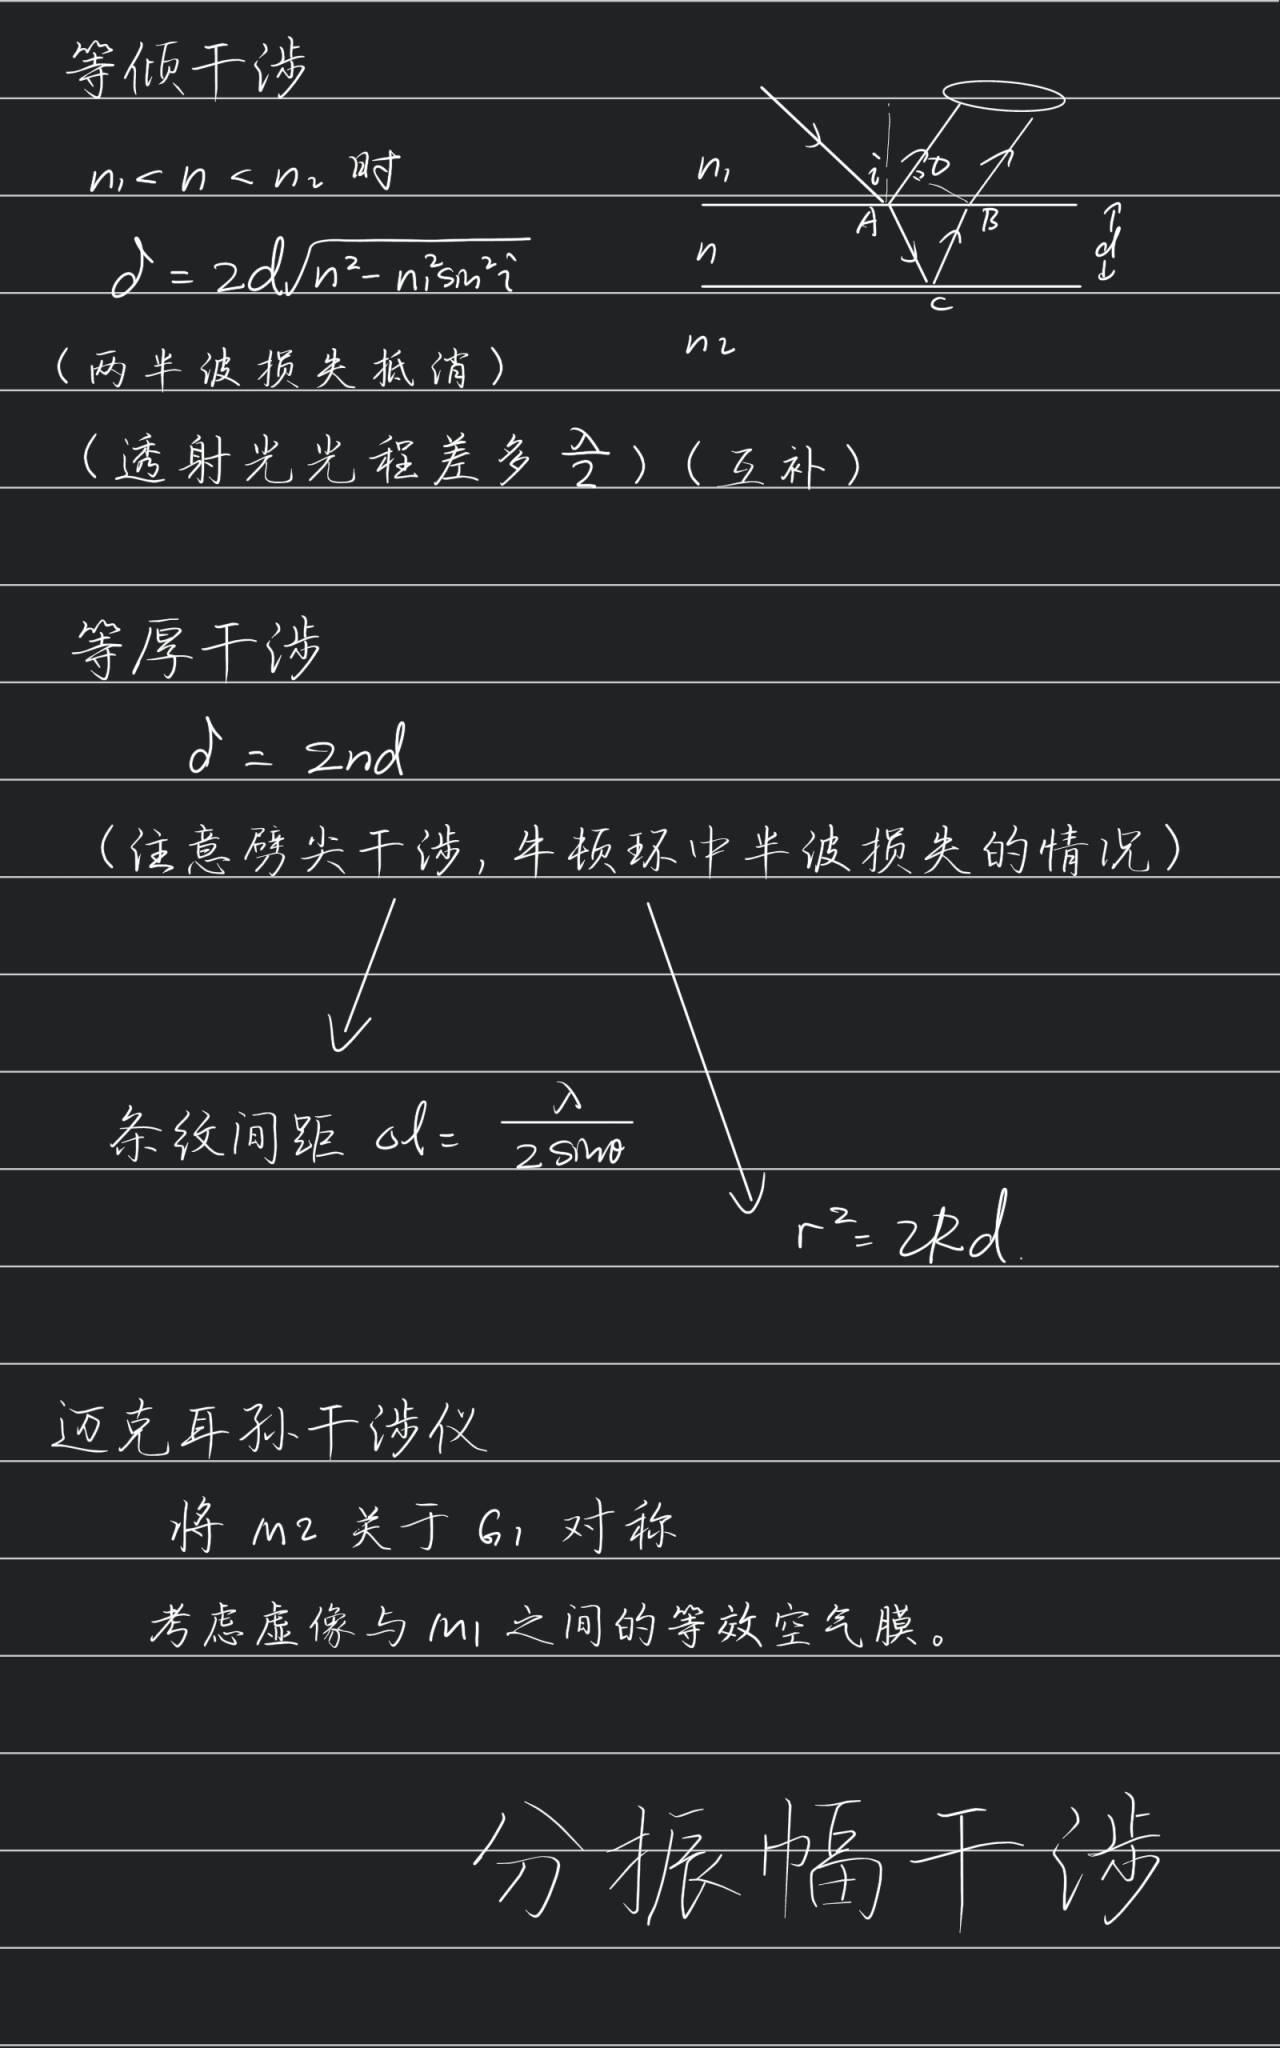 等倾干涉
n₁ < n < n₂ 时
δ = 2d√(n² - n₁²sin²i)
(两半波损失抵消)
(透射光光程差多 λ/2)(互补)
n₁
i
D
A
B
n
d
C
n₂
等厚干涉
δ = 2nd
(注意劈尖干涉, 牛顿环中半波损失的情况)
条纹间距 Δl = λ/2sinθ
r² = 2Rd.
迈克耳孙干涉仪
将 m2 关于 G₁ 对称
考虑虚像与 m₁ 之间的等效空气膜。
分振幅干涉